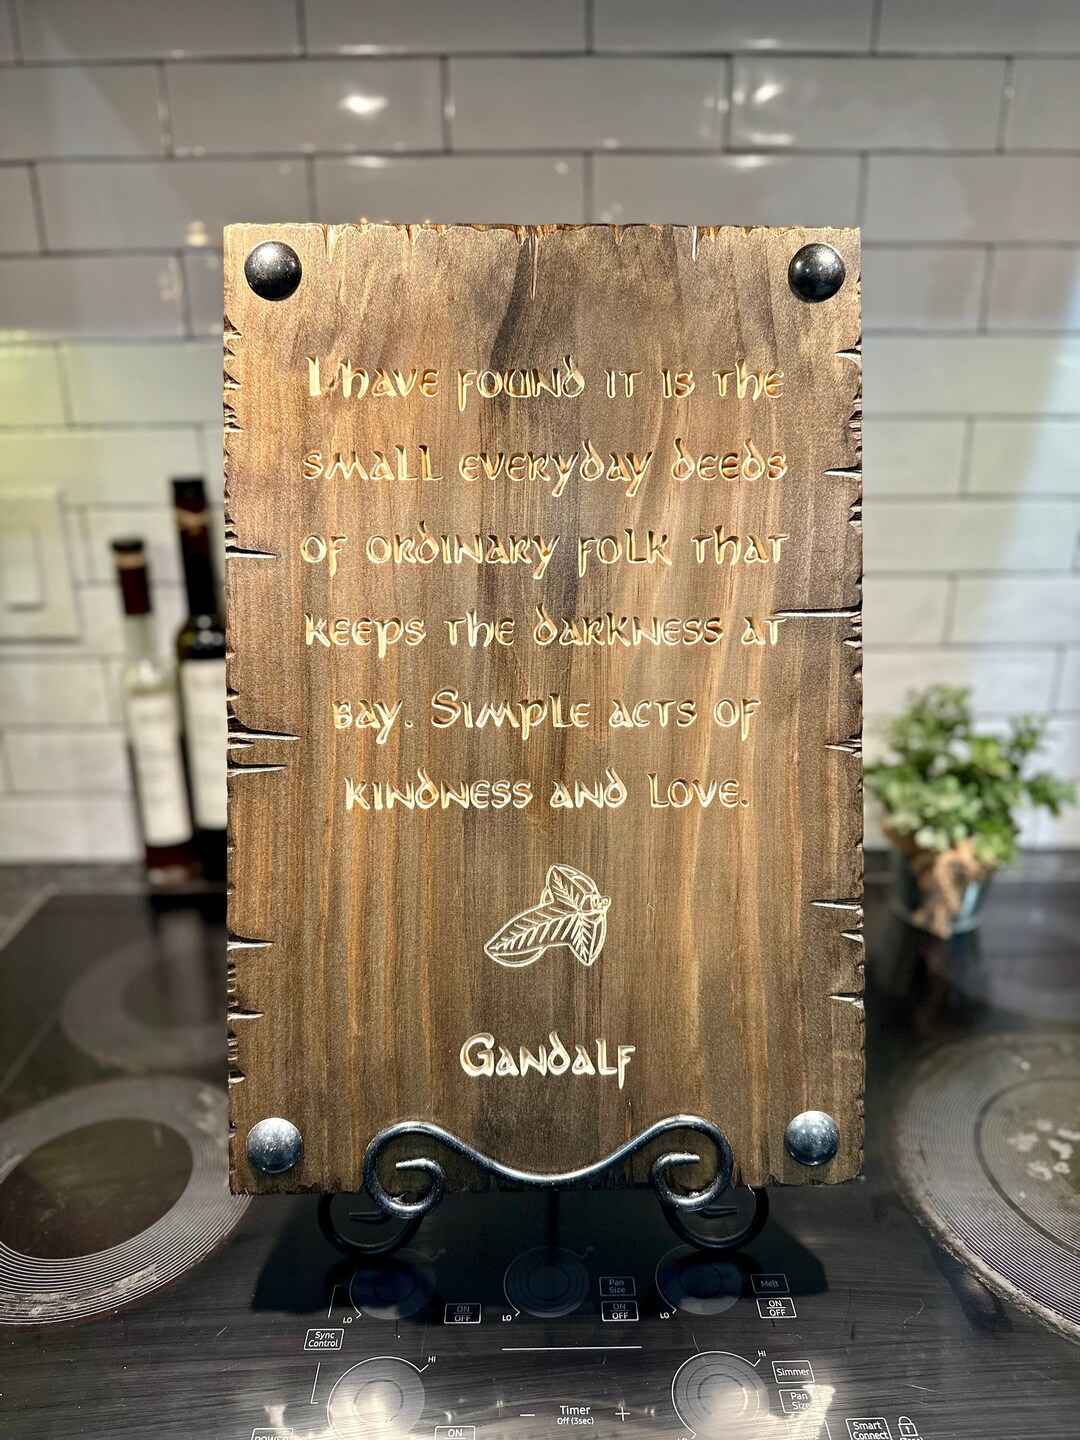 I have found it is the
small everyday deeds
of ordinary folk that
keeps the darkness at
bay. Simple acts of
kindness and love.
Gandalf
Pan
Size
Melt
ON
OFF
ON
OFF
ON
OFF
LO
LO
LO
Sync
Control
HI
HI
Simmer
Pan
Size
Timer
Off (3sec)
− +
Smart
Connect
(3sec)
POWER
ON